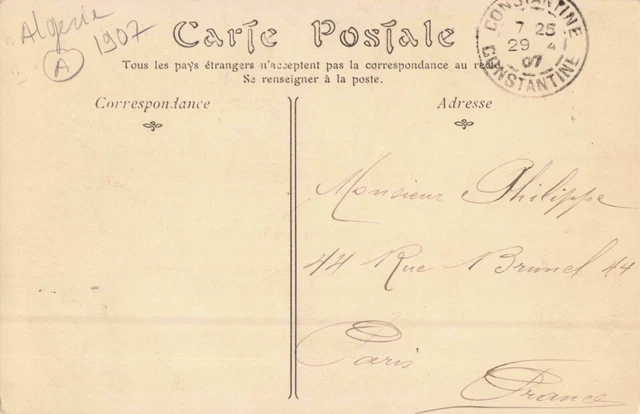 Algeria
1907
A
Carte Postale
Tous les pays étrangers n'acceptent pas la correspondance au recto
Se renseigner à la poste.
CONSTANTINE
7 25
29 4
07
CONSTANTINE
Correspondance
Adresse
Monsieur Philippe
44 Rue Brunel 44
Paris
France